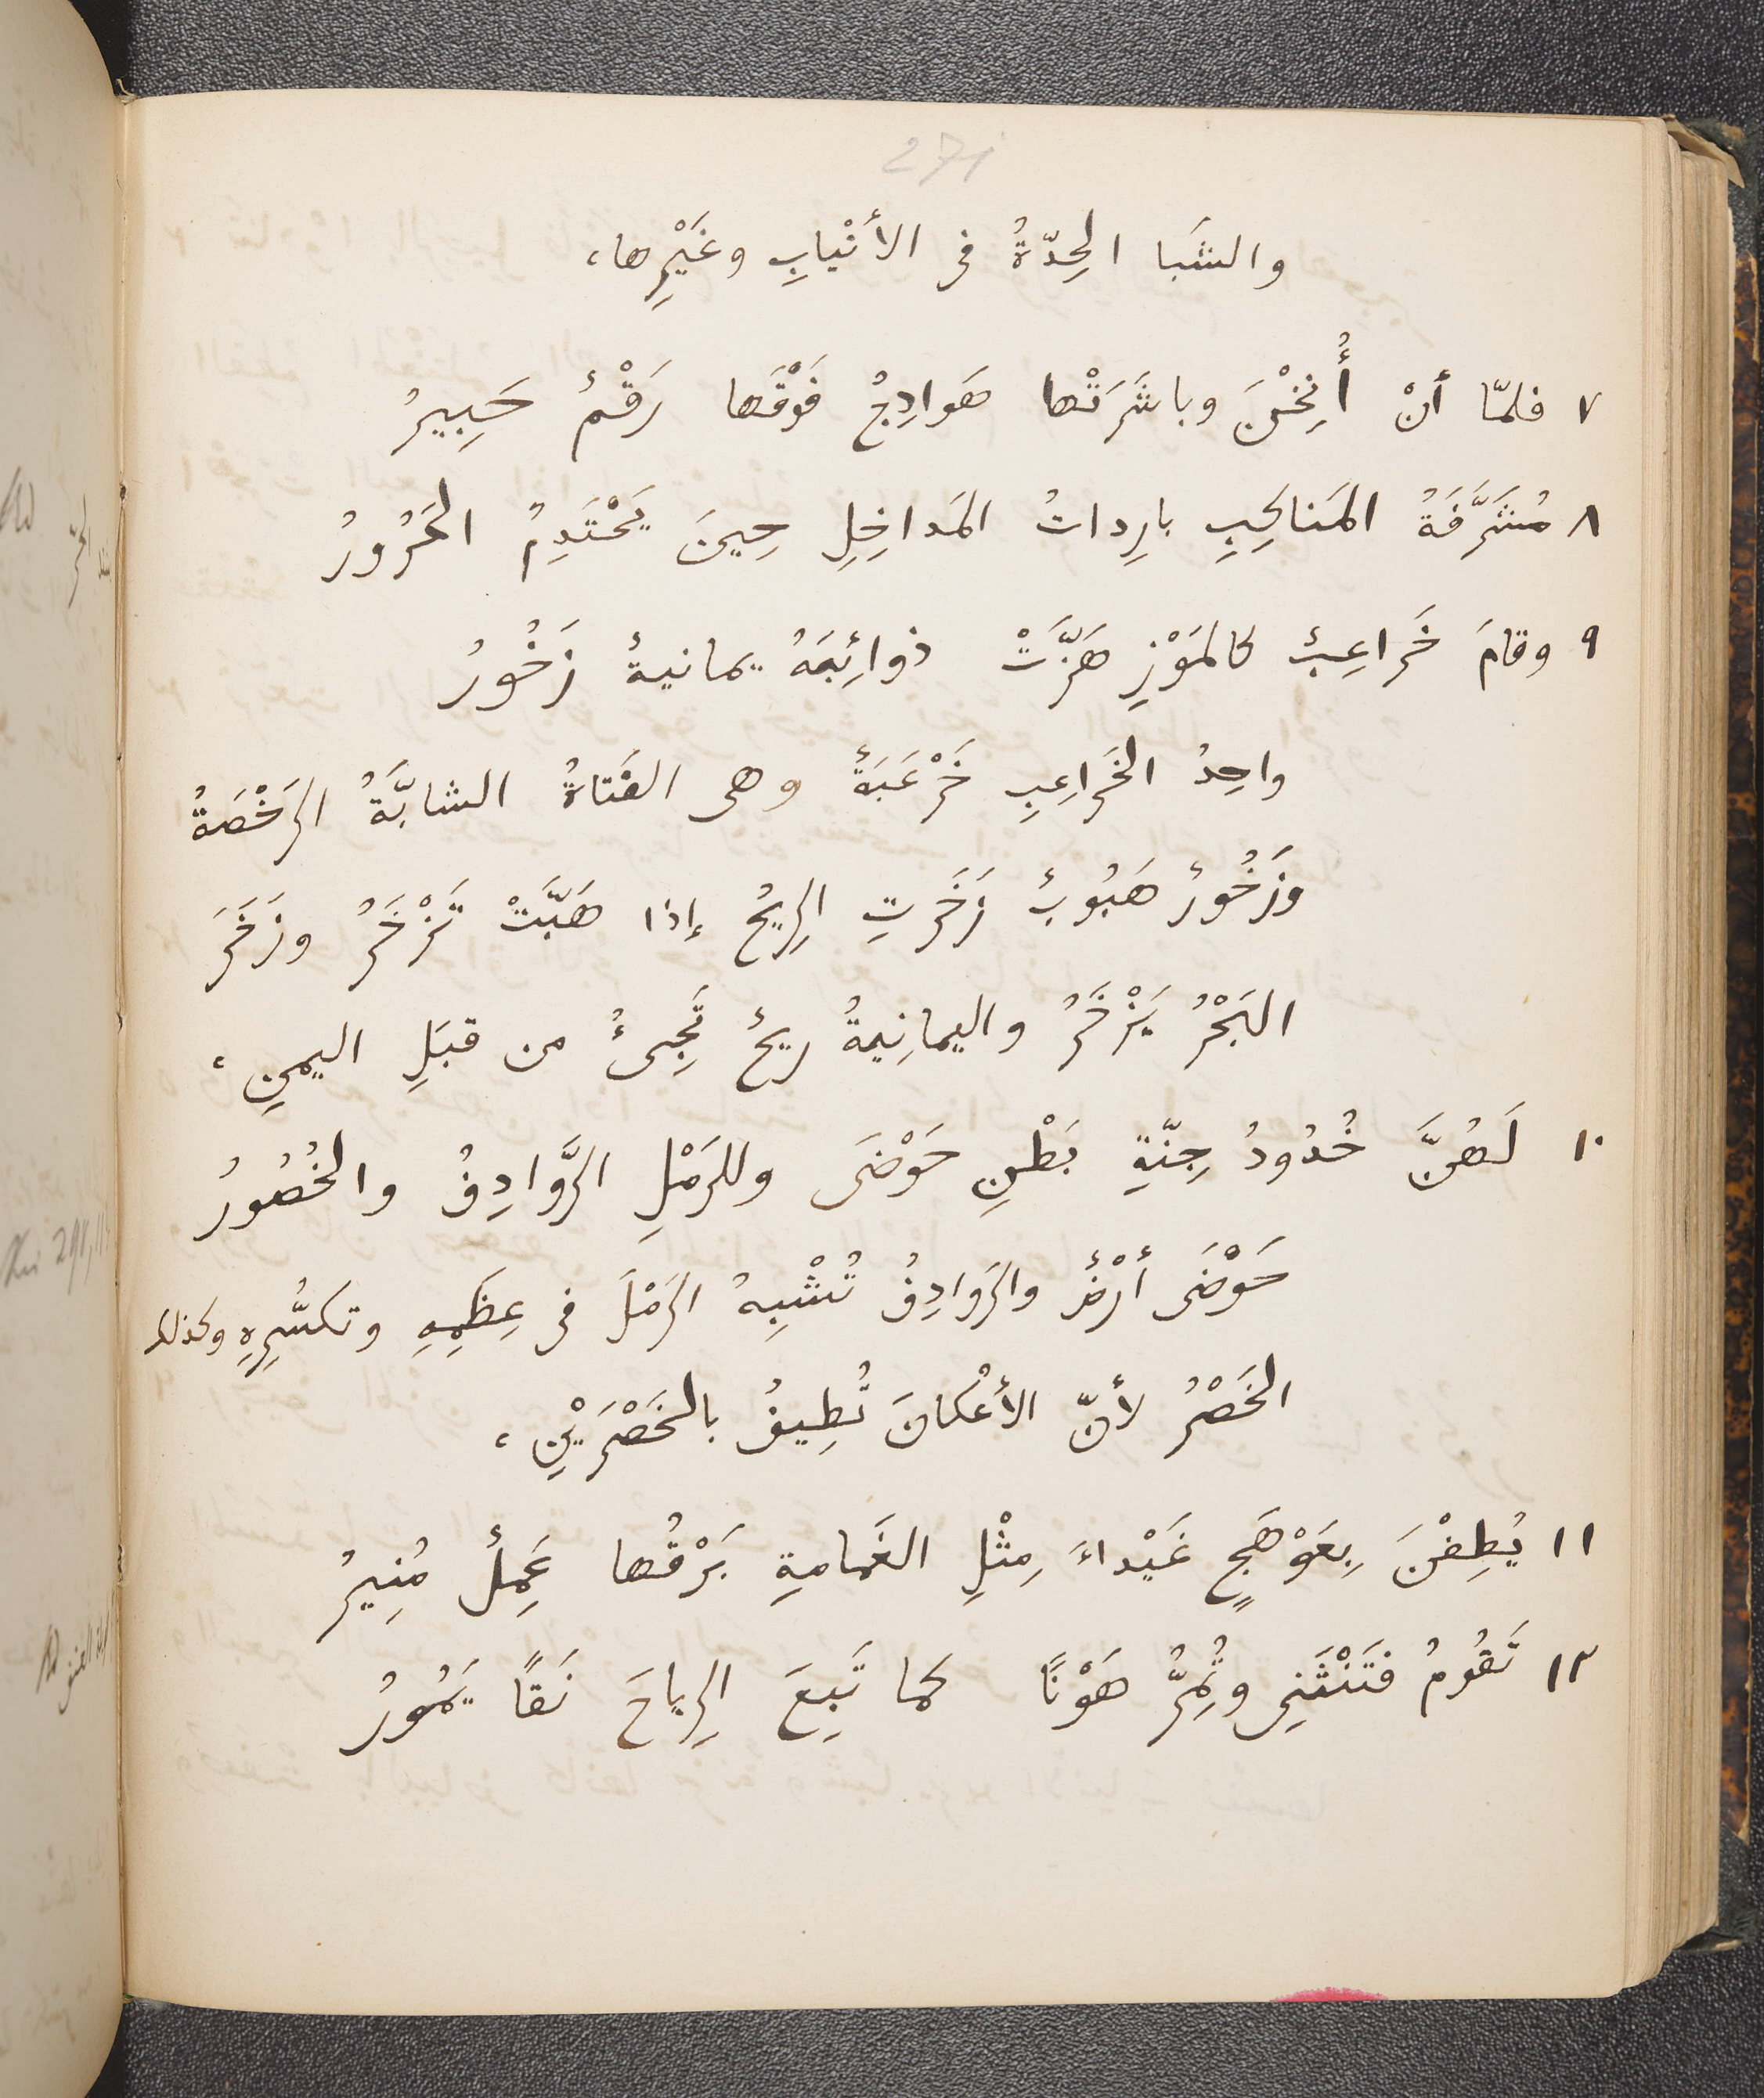 والشَبا الحِدّةُ فى الأنْيابِ وغَيْرِها،
٧ فلمّا أنْ أُنِخْنَ وباشَرَتْها هَوادِجُ فَوْقَها رَقْمٌ حَبِيرُ
٨ مُشَرَّفَةُ المَناكِبِ بارِداتُ المَداخِلِ حِينَ يَحْتَدِمُ الحَرُورُ
٩ وقامَ خَراعِبٌ كالمَوْزِ هَزَّتْ ذوائِبَهُ يمانيةٌ زَخُورُ
واحِدُ الخَراعِبِ خَرْعَبَةٌ وهى الفَتاةُ الشابَّةُ الرَخْصَةُ
وزَخُورٌ هَبُوبٌ زَخَرَتِ الرِيحُ إذا هَبَّتْ تَزْخَرُ وزَخَرَ
البَحْرُ يَزْخَرُ واليمانِيةُ رِيحٌ تَجِىءُ من قبَلِ اليمنِ،
١٠ لَهُنَّ خُدُودُ جِنّةِ بَطْنِ حَوْضَى وللرَمْلِ الرَّوادِفُ والخُصُورُ
حَوْضَى أرْضٌ والرَوادِفُ تُشْبِهُ الرَمْلَ فى عِظَمِهِ وتكسُّرِهِ وكذلك
الخَصْرُ لأنّ الأعْكانَ تُطِيفُ بالخَصْرَيْنِ،
١١ يُطِفْنَ بِعَوْهَجٍ غَيْداءَ مِثْلِ الغَمامةِ بَرْقُها عَمِلٌ مُنِيرُ
١٢ تَقُومُ فتَنْثَنِى وتُمِرُّ هَوْنًا كما تَبِعَ الرِياحَ نَقًا يَمُورُ